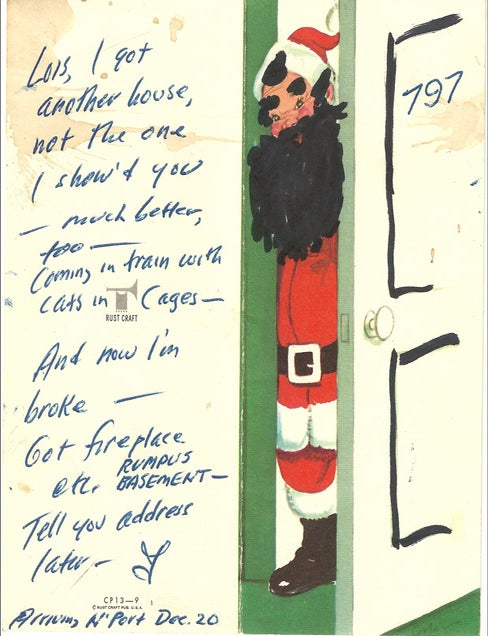 Lois, I got
another house,
not the one
I show'd you
— much better,
too —
Coming in train with
cats in Cages —
RUST CRAFT
And now I'm
broke —
Got fireplace
etc. RUMPUS
BASEMENT —
Tell you address
later —
CP13—9
© RUST CRAFT PUB. U.S.A.
1
Arriving N'Port Dec. 20
797